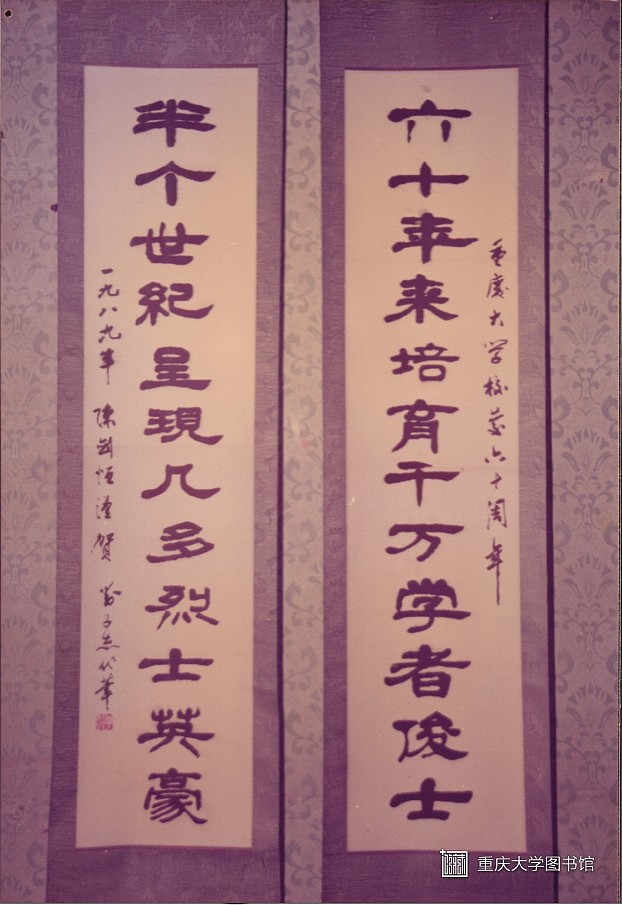 重慶大学校慶六十周年
六十年来培育千万学者俊士
半个世紀呈現几多烈士英豪
一九八九年 陳剑恒谨贺 子杰代筆
重庆大学图书馆